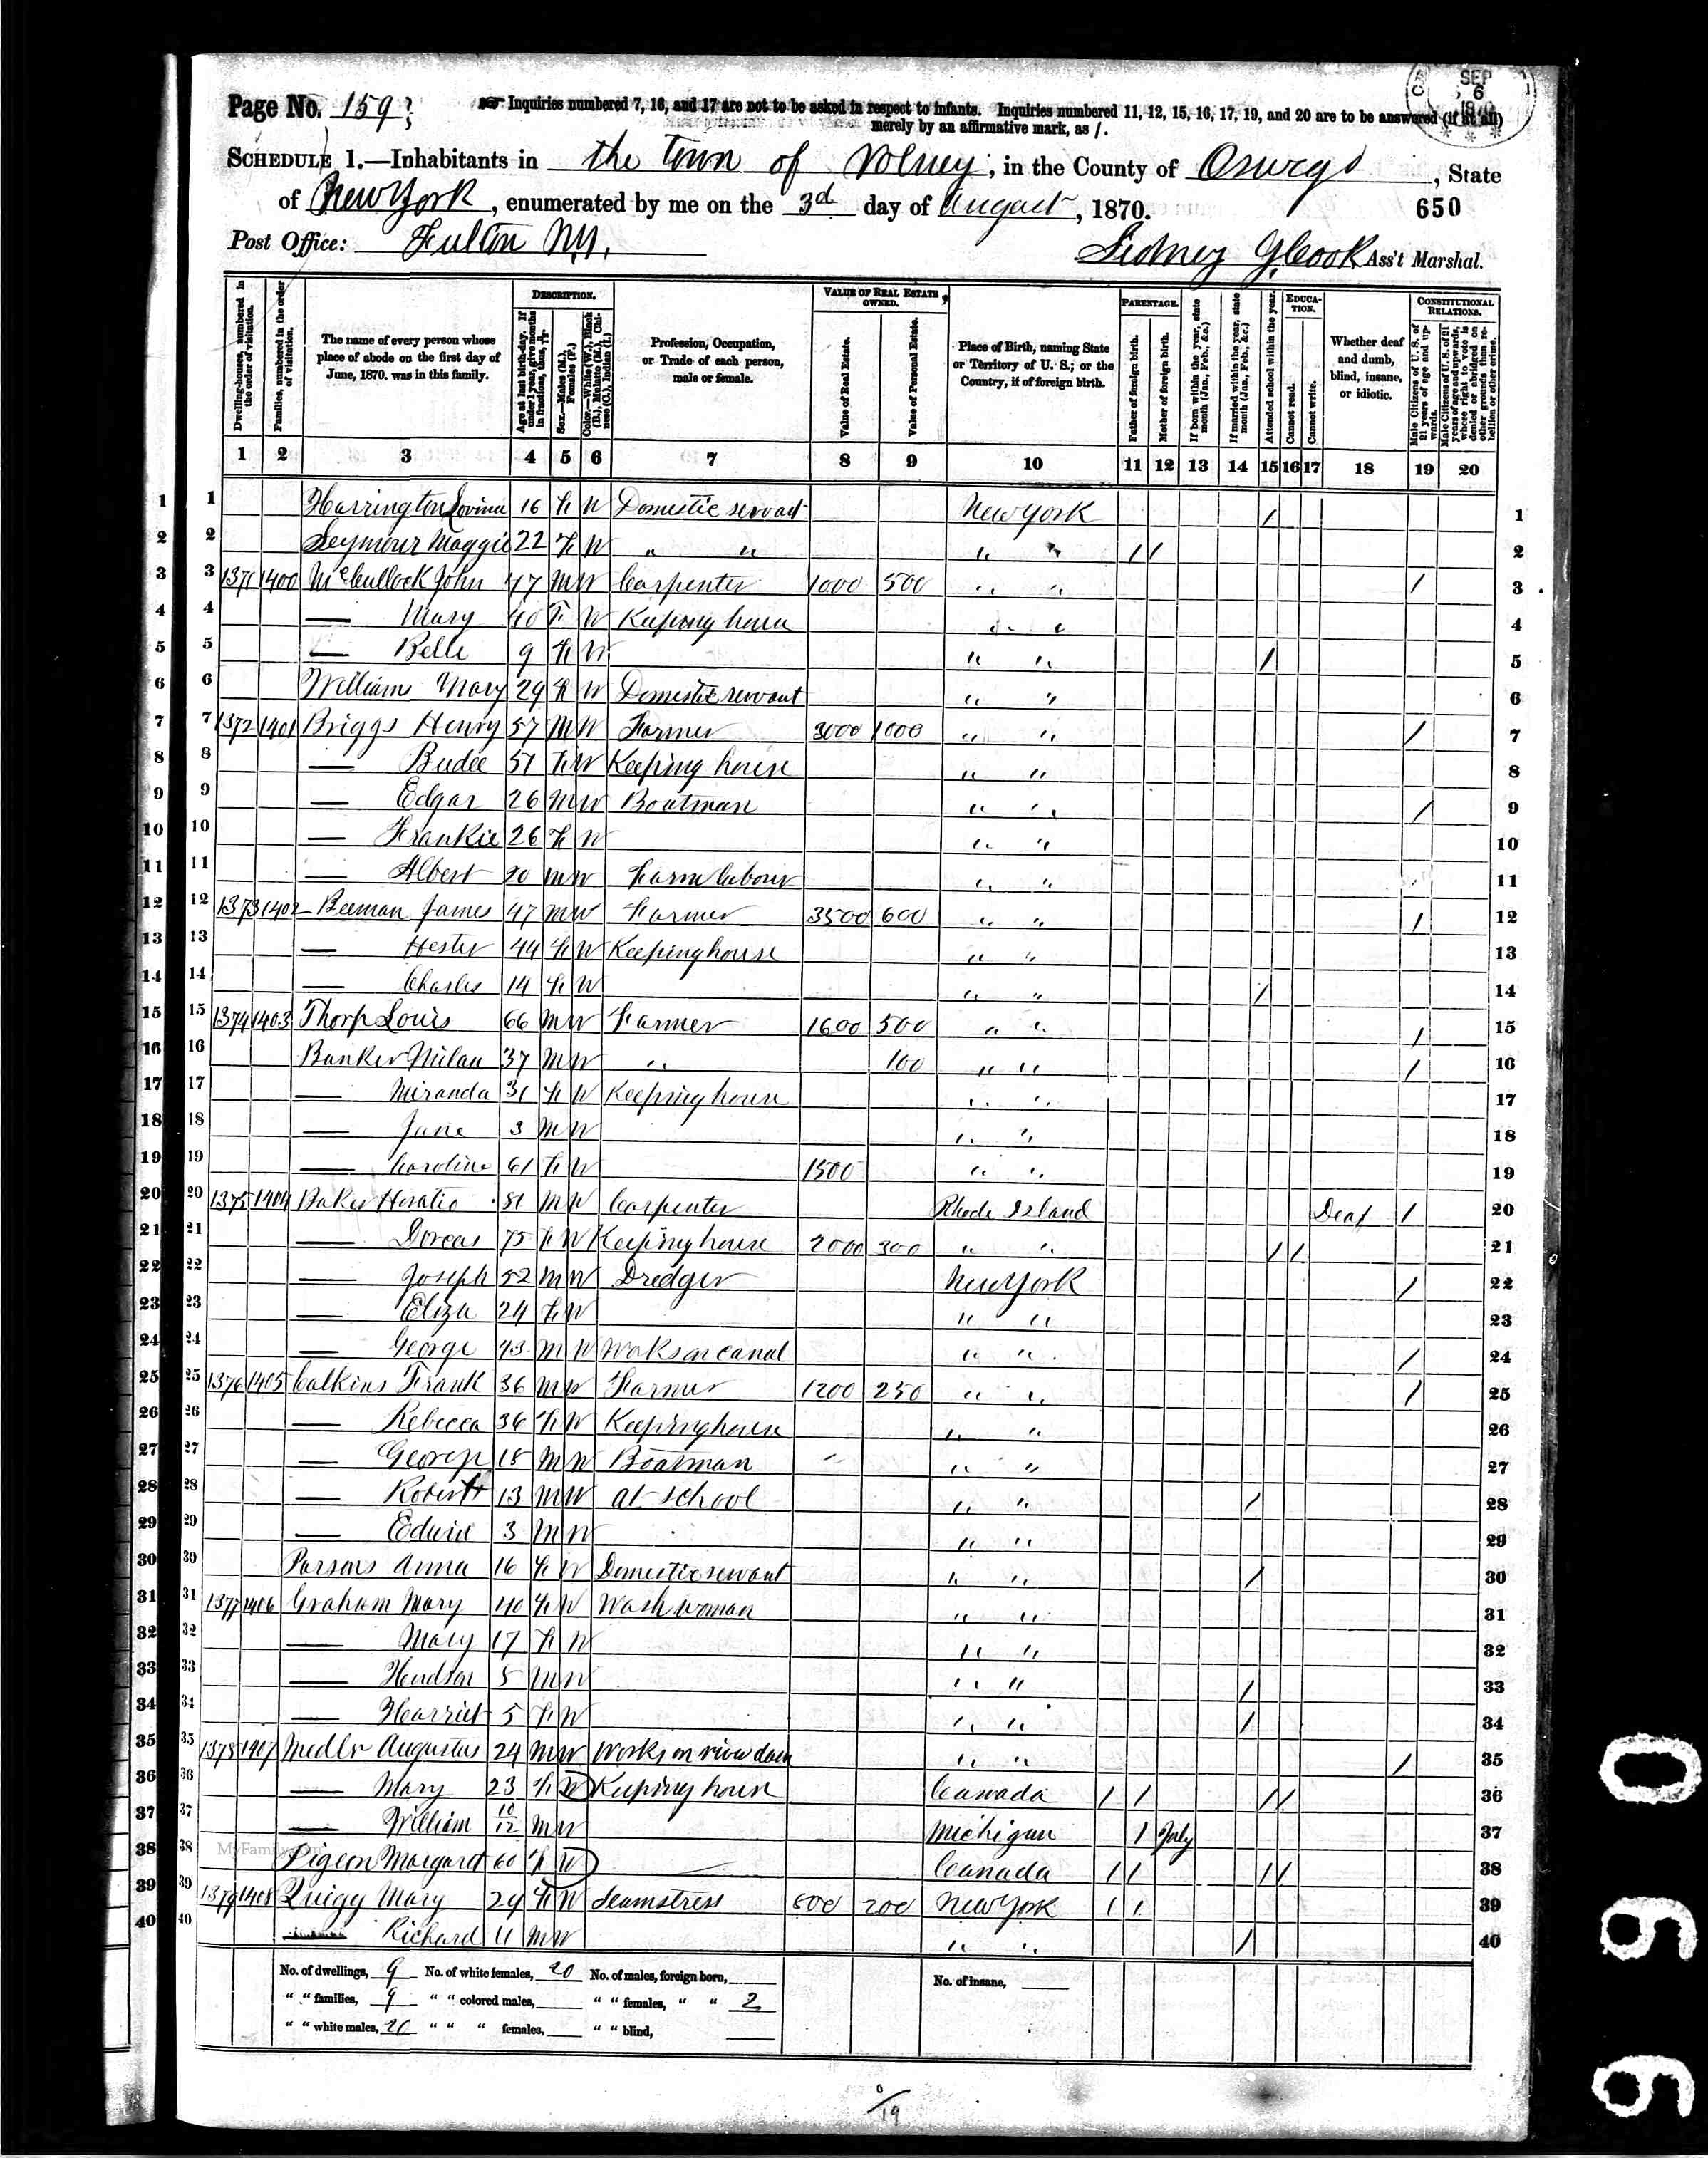 Page No. 159
Inquiries numbered 7, 16, and 17 are not to be asked in respect to infants. Inquiries numbered 11, 12, 15, 16, 17, 19, and 20 are to be answered (if at all)
merely by an affirmative mark, as /.
SEP 6
SCHEDULE 1.—Inhabitants in the town of Volney, in the County of Oswego, State
of New York, enumerated by me on the 3d day of August, 1870.
650
Post Office: Fulton N.Y.
Sidney G Cook Ass't Marshal.
Dwelling-houses, numbered in the order of visitation.
Families, numbered in the order of visitation.
The name of every person whose place of abode on the first day of June, 1870, was in this family.
DESCRIPTION.
Age at last birth-day. If under 1 year, give months in fractions, thus,
Sex.—Males (M.), Females (F.)
Color.—White (W.), Black (B.), Mulatto (M.), Chinese (C.), Indian (I.)
Profession, Occupation, or Trade of each person, male or female.
VALUE OF REAL ESTATE OWNED.
Value of Real Estate.
Value of Personal Estate.
Place of Birth, naming State or Territory of U. S.; or the Country, if of foreign birth.
PARENTAGE.
Father of foreign birth.
Mother of foreign birth.
If born within the year, state month (Jan., Feb., &c.)
If married within the year, state month (Jan., Feb., &c.)
Attended school within the year.
EDUCATION.
Cannot read.
Cannot write.
Whether deaf and dumb, blind, insane, or idiotic.
CONSTITUTIONAL RELATIONS.
Male Citizens of U. S. of 21 years of age and upwards.
Male Citizens of U. S. of 21 years of age and upwards, whose right to vote is denied or abridged on other grounds than rebellion or other crime.
1 2 3 4 5 6 7 8 9 10 11 12 13 14 15 16 17 18 19 20
1 1 Harrington Lovina 16 F W Domestic servant New York / 1
2 2 Seymour Maggie 22 F W " " " " / / 2
3 3 1371 1400 McCullock John 47 M W Carpenter 1000 500 " " / 3
4 4 — Mary 40 F W Keeping house " " 4
5 5 — Belle 9 F W " " / 5
6 6 Williams Mary 29 F W Domestic servant " " 6
7 7 1372 1401 Briggs Henry 57 M W Farmer 3000 1000 " " / 7
8 8 — 51 F W Keeping house " " 8
9 9 — Edgar 26 M W Boatman " " / 9
10 10 — Frankie 26 F W " " 10
11 11 — Albert 20 M W Farm labour " " 11
12 12 1373 1402 Beeman James 47 M W Farmer 3500 600 " " / 12
13 13 — Hester 44 F W Keeping house " " 13
14 14 — Charles 14 F W " " / 14
15 15 1374 1403 Thorp Louis 66 M W Farmer 1600 500 " " / 15
16 16 Bunker Milan 37 M W " 100 " " / 16
17 17 — Miranda 31 F W Keeping house " " 17
18 18 — Jane 3 M W " " 18
19 19 — Caroline 61 F W 1500 " " 19
20 20 1375 1404 Baker Horatio 81 M W Carpenter Rhode Island Deaf / 20
21 21 — Dorcas 75 F W Keeping house 2000 300 " " / / 21
22 22 — Joseph 52 M W Dredger New York / 22
23 23 — Eliza 24 F W " " 23
24 24 — George 43 M W Works on canal " " / 24
25 25 1376 1405 Calkins Frank 36 M W Farmer 1200 250 " " / 25
26 26 — Rebecca 36 F W Keeping house " " 26
27 27 — George 18 M W Boatman " " 27
28 28 — Robert 13 M W at school " " / 28
29 29 — Edwin 3 M W " " 29
30 30 Parsons Anna 16 F W Domestic servant " " / 30
31 31 1377 1406 Graham Mary 40 F W Wash woman " " 31
32 32 — Mary 17 F W " " 32
33 33 — Hudson 5 M W " " / 33
34 34 — Harriet 5 F W " " / 34
35 35 1378 1407 Medlr Augustus 24 M W Works on river dam " " / 35
36 36 — Mary 23 F W Keeping house Canada / / / / 36
37 37 — William 10/12 M W Michigan / July 37
38 38 Pigeon Margaret 60 F W Canada / / / / 38
39 39 1379 1408 Quigg Mary 29 F W Seamstress 600 200 New York / / 39
40 40 Richard 11 M W " " / 40
MyFamily.com
No. of dwellings, 9 No. of white females, 20 No. of males, foreign born, No. of insane,
" " families, 9 " " colored males, " " females, " " 2
" " white males, 20 " " " females, " " blind,
0/19
0 9 9